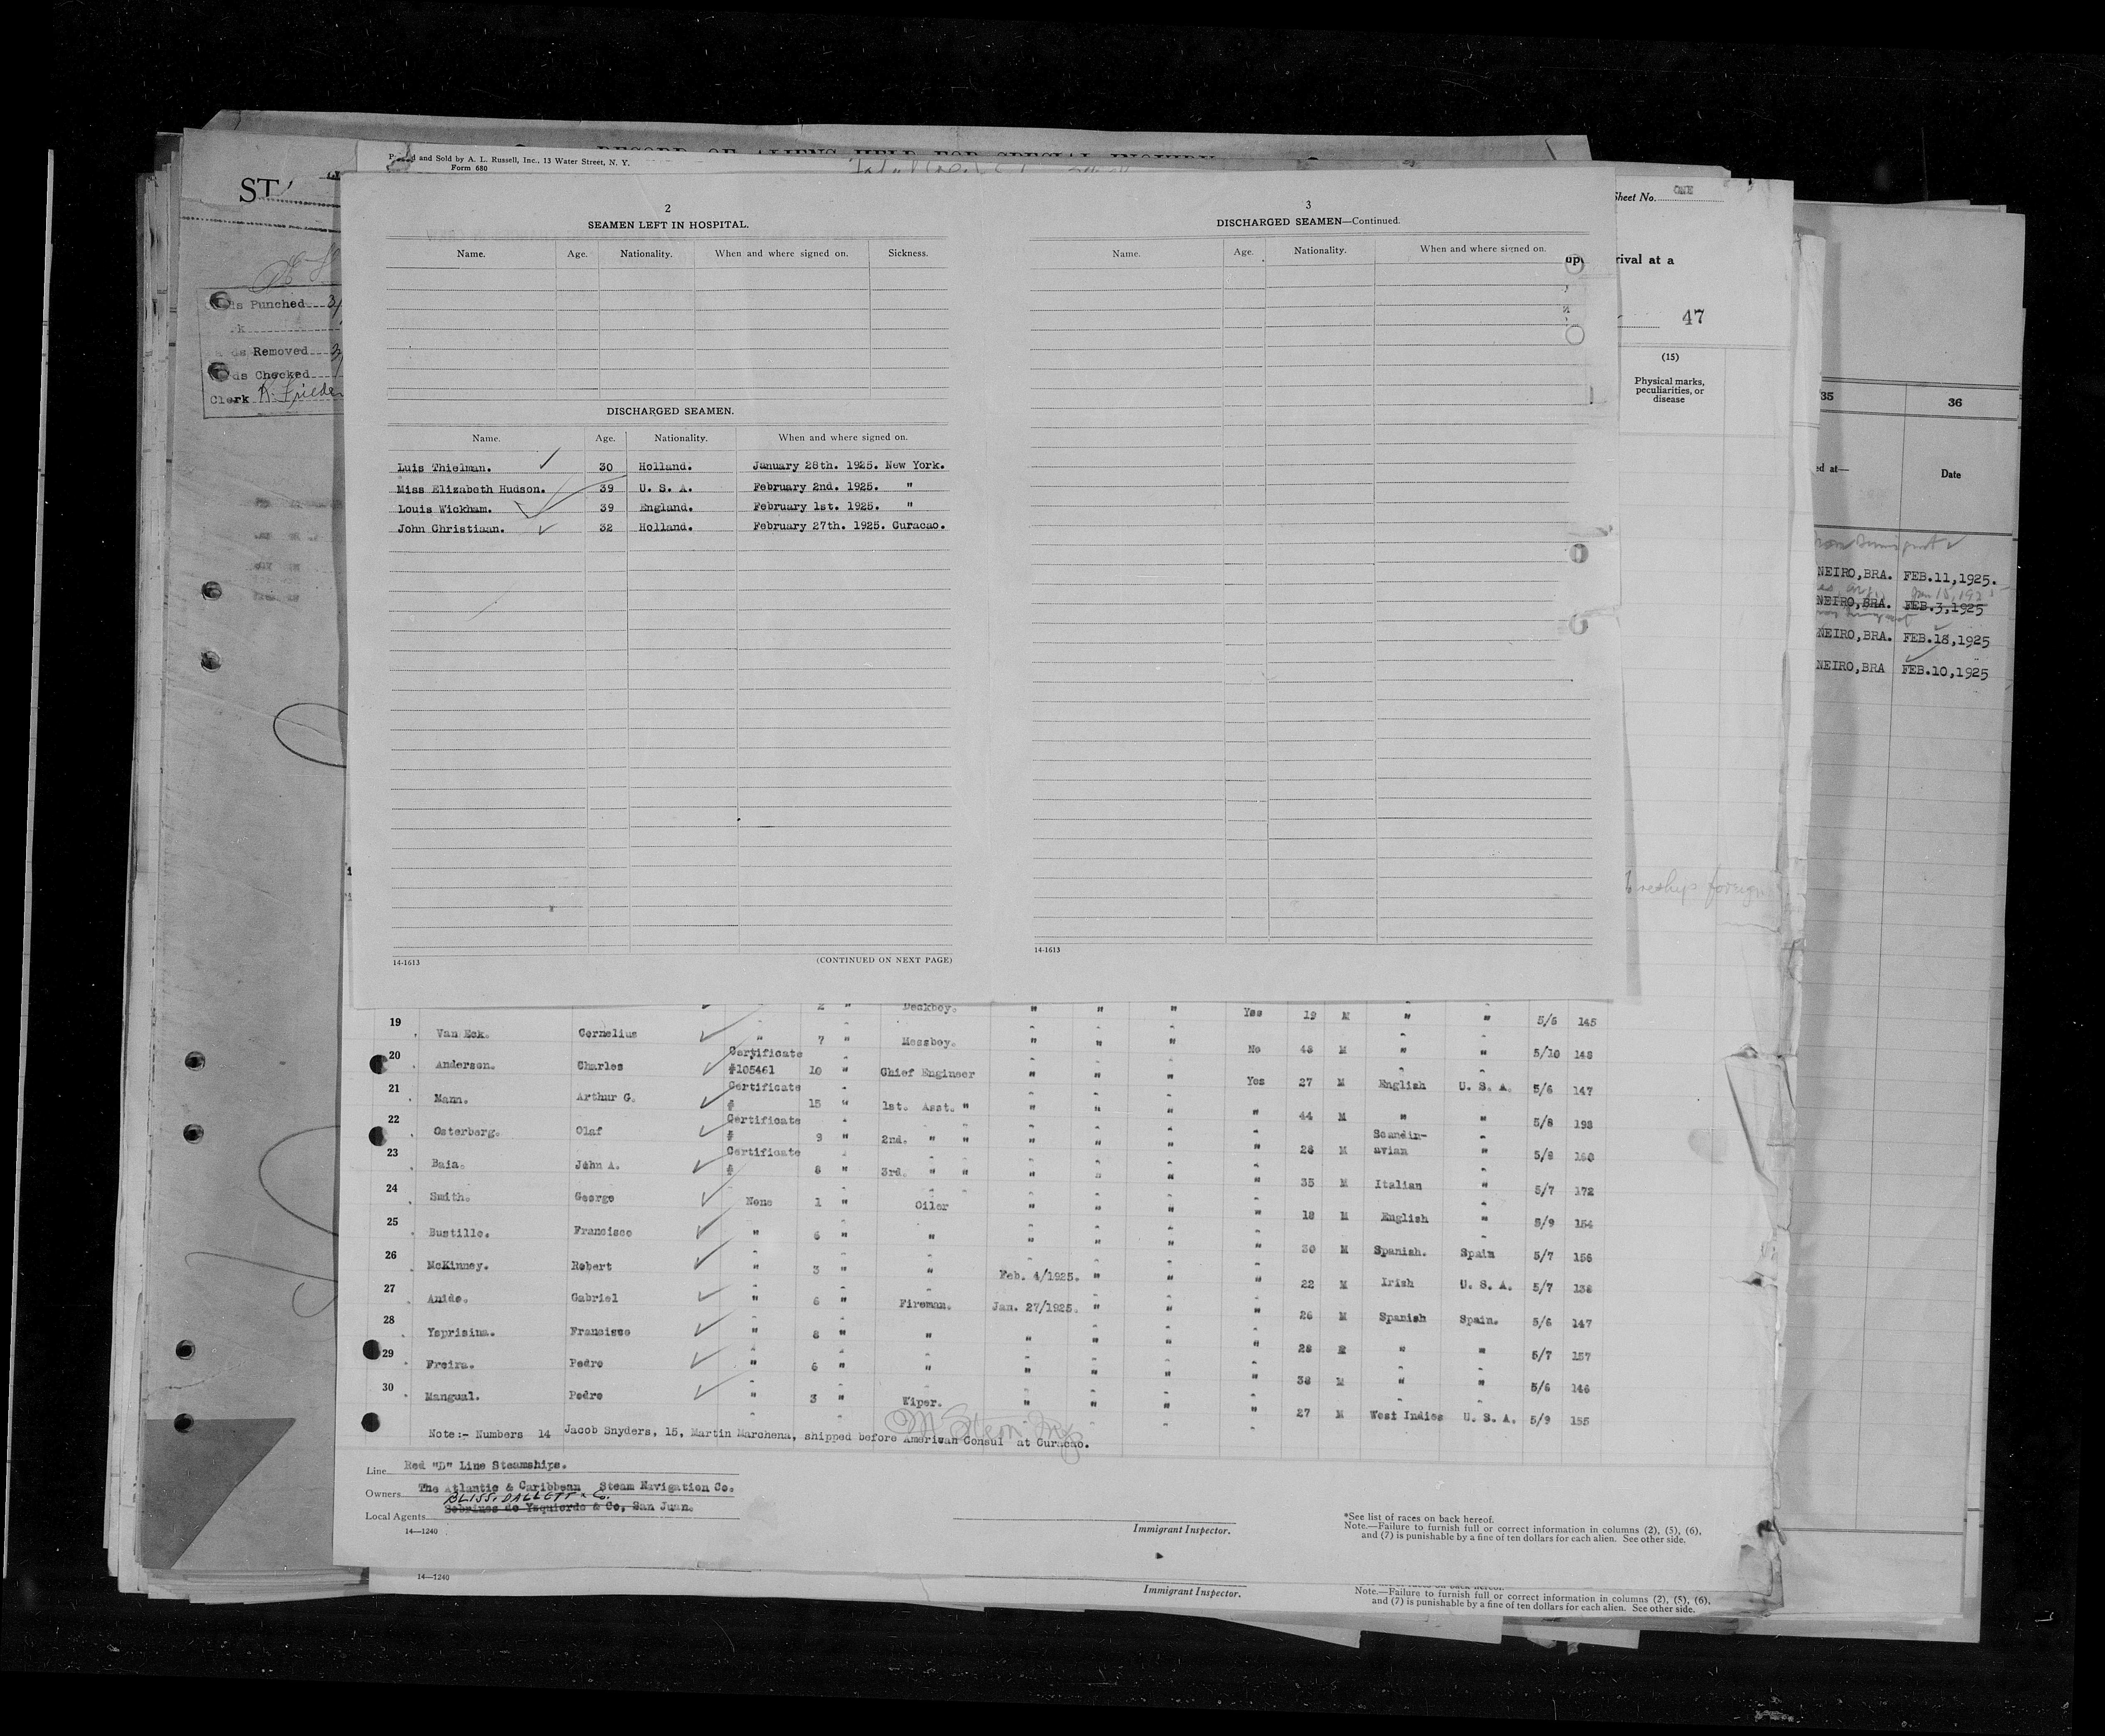 RECORD OF ALIENS HELD FOR SPECIAL INQUIRY
and Sold by A. L. Russell, Inc., 13 Water Street, N. Y.
Form 680
ST
Sheet No. ONE
rival at a
47
(15)
Physical marks, peculiarities, or disease
Punched
ds Removed
ds Checked
Clerk
2
SEAMEN LEFT IN HOSPITAL.
Name. Age. Nationality. When and where signed on. Sickness.
DISCHARGED SEAMEN.
Name. Age. Nationality. When and where signed on.
Luis Thielman. 30 Holland. January 28th. 1925. New York.
Miss Elizabeth Hudson. 39 U. S. A. February 2nd. 1925. "
Louis Wickham. 39 England. February 1st. 1925. "
John Christiaan. 32 Holland. February 27th. 1925. Curacao.
14-1613
(CONTINUED ON NEXT PAGE)
3
DISCHARGED SEAMEN—Continued.
Name. Age. Nationality. When and where signed on.
up
14-1613
35 36
ed at— Date
NEIRO,BRA. FEB.11,1925.
NEIRO,BRA. FEB.3,1925
NEIRO,BRA. FEB.18,1925
NEIRO,BRA FEB.10,1925
reship foreign
2 " Deckboy. " " " Yes 19 M " " 5/6 145
19 Van Eck. Cornelius " 7 " Messboy. " " " No 48 M " " 5/10 148
20 Anderson. Charles Certificate #105461 10 " Chief Engineer " " " Yes 27 M English U. S. A. 5/6 147
21 Mann. Arthur G. Certificate # 15 " 1st. Asst. " " " " " 44 M " " 5/8 198
22 Osterberg. Olaf Certificate # 9 " 2nd. " " " " " " 28 M Scandinavian " 5/8 160
23 Baia. John A. Certificate # 8 " 3rd. " " " " " " 35 M Italian " 5/7 172
24 Smith. George None 1 " Oiler " " " " 18 M English " 5/9 154
25 Bustillo. Francisco " 6 " " " " " " 30 M Spanish. Spain 5/7 156
26 McKinney. Robert " 3 " " Feb. 4/1925. " " " 22 M Irish U. S. A. 5/7 138
27 Anido. Gabriel " 6 " Fireman. Jan. 27/1925. " " " 26 M Spanish Spain. 5/6 147
28 Ysprisina. Francisco " 8 " " " " " " 28 M " " 5/7 157
29 Freira. Pedro " 6 " " " " " " 38 M " " 5/6 146
30 Mangual. Pedro " 3 " Wiper. " " " " 27 M West Indies U. S. A. 5/9 155
Note:- Numbers 14 Jacob Snyders, 15, Martin Marchena, shipped before American Consul at Curacao.
Line Red "D" Line Steamships.
Owners The Atlantic & Caribbean Steam Navigation Co.
BLISS, DALLETT & Co.
Local Agents Sobrinos de Ysquierdo & Co, San Juan.
14—1240
Immigrant Inspector.
*See list of races on back hereof.
Note.—Failure to furnish full or correct information in columns (2), (5), (6),
and (7) is punishable by a fine of ten dollars for each alien. See other side.
14—1240
Immigrant Inspector.
Note.—Failure to furnish full or correct information in columns (2), (5), (6),
and (7) is punishable by a fine of ten dollars for each alien. See other side.